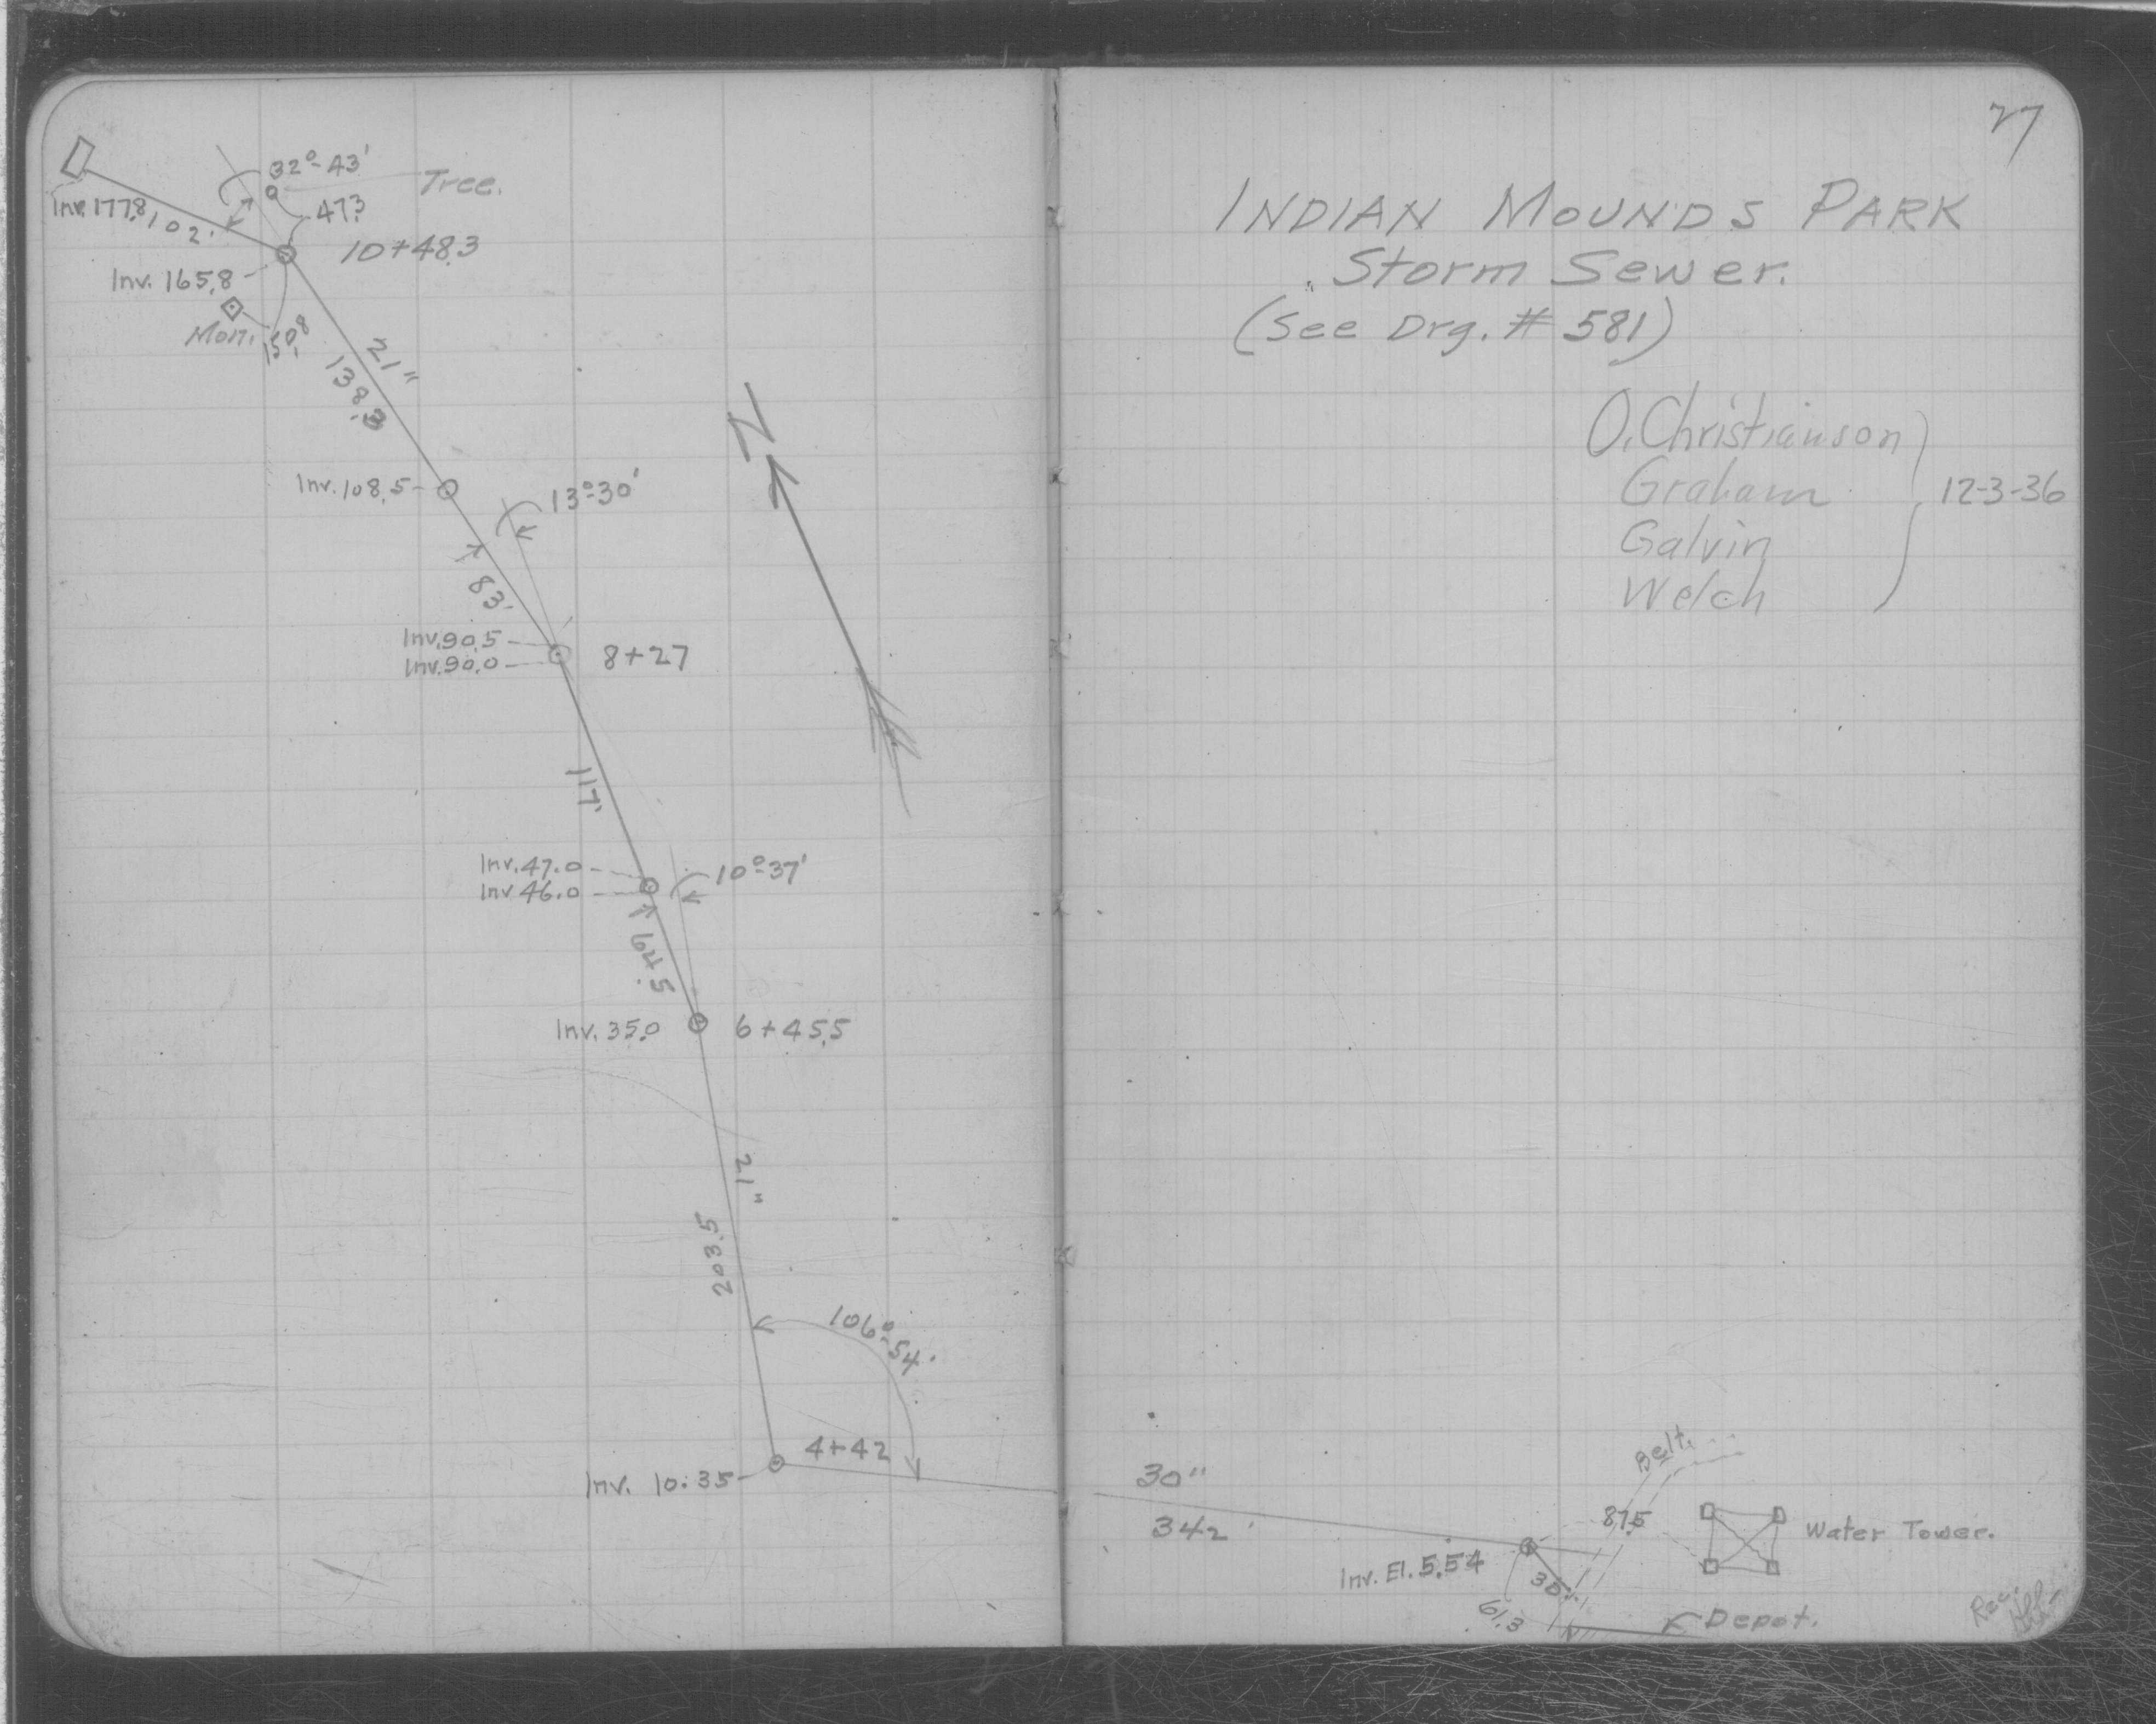 32°-43'
Tree.
47.3
Inv. 177.8
102'
10+48.3
Inv. 165.8
Mon.
150.8
21"
138.3
Inv. 108.5
13°-30'
83'
N
Inv. 90.5
Inv. 90.0
8+27
117'
Inv. 47.0
Inv 46.0
10°-37'
64.5
Inv. 35.0
6+45.5
21"
203.5
106°-54'
4+42
Inv. 10.35
27
INDIAN MOUNDS PARK
Storm Sewer.
(See Drg. # 581)
O. Christianson
Graham
Galvin
Welch
12-3-36
30"
342'
Belt.
87.5
Water Tower.
Inv. El. 5.54
30"
61.3
Depot.
Rec.